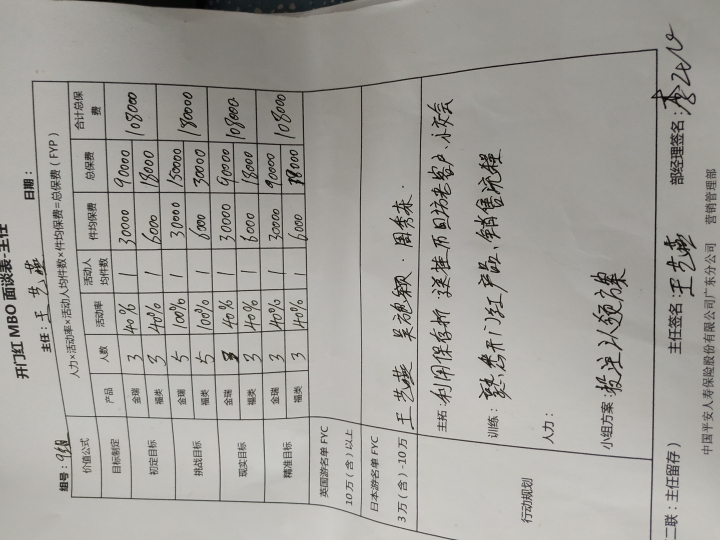 开门红 MBO 面谈表-主任
组号： 主任：王艺燕 日期：
价值公式 人力×活动率×活动人均件数×件均保费=总保费（FYP）
目标制定 产品 人数 活动率 活动人均件数 件均保费 总保费 合计总保费
初定目标 金瑞 3 40% 1 30000 90000 108000
福类 3 40% 1 6000 18000
挑战目标 金瑞 5 100% 1 30000 150000 180000
福类 5 100% 1 6000 30000
现实目标 金瑞 3 40% 1 30000 90000 108000
福类 3 40% 1 6000 18000
精准目标 金瑞 3 40% 1 30000 90000 108000
福类 3 40% 1 6000 18000
英国游名单 FYC
10万（含）以上
日本游名单 FYC
3万（含）-10万
王艺燕 周秀
行动规划
主拓：利用保存折 送挂历回访老客户、
训练：熟悉开门红产品、销售流程
人力：
小组方案：投注认领方案
二联：主任留存） 主任签名：王艺燕 部经理签名：
中国平安人寿保险股份有限公司广东分公司 营销管理部